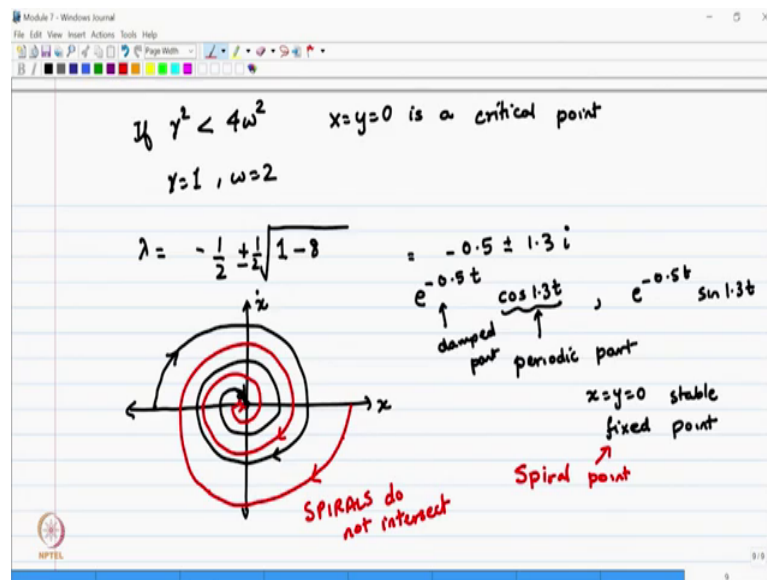 Module 7 - Windows Journal
File Edit View Insert Actions Tools Help
Page Width
B I
If γ² < 4ω² x=y=0 is a critical point
γ=1 , ω=2
λ = -1/2 ± 1/2 √(1-8) = -0.5 ± 1.3 i
e^{-0.5t} cos 1.3t , e^{-0.5t} sin 1.3t
damped part
periodic part
ẋ
x
x=y=0 stable
fixed point
Spiral point
SPIRALS do
not intersect
NPTEL
9/9
9